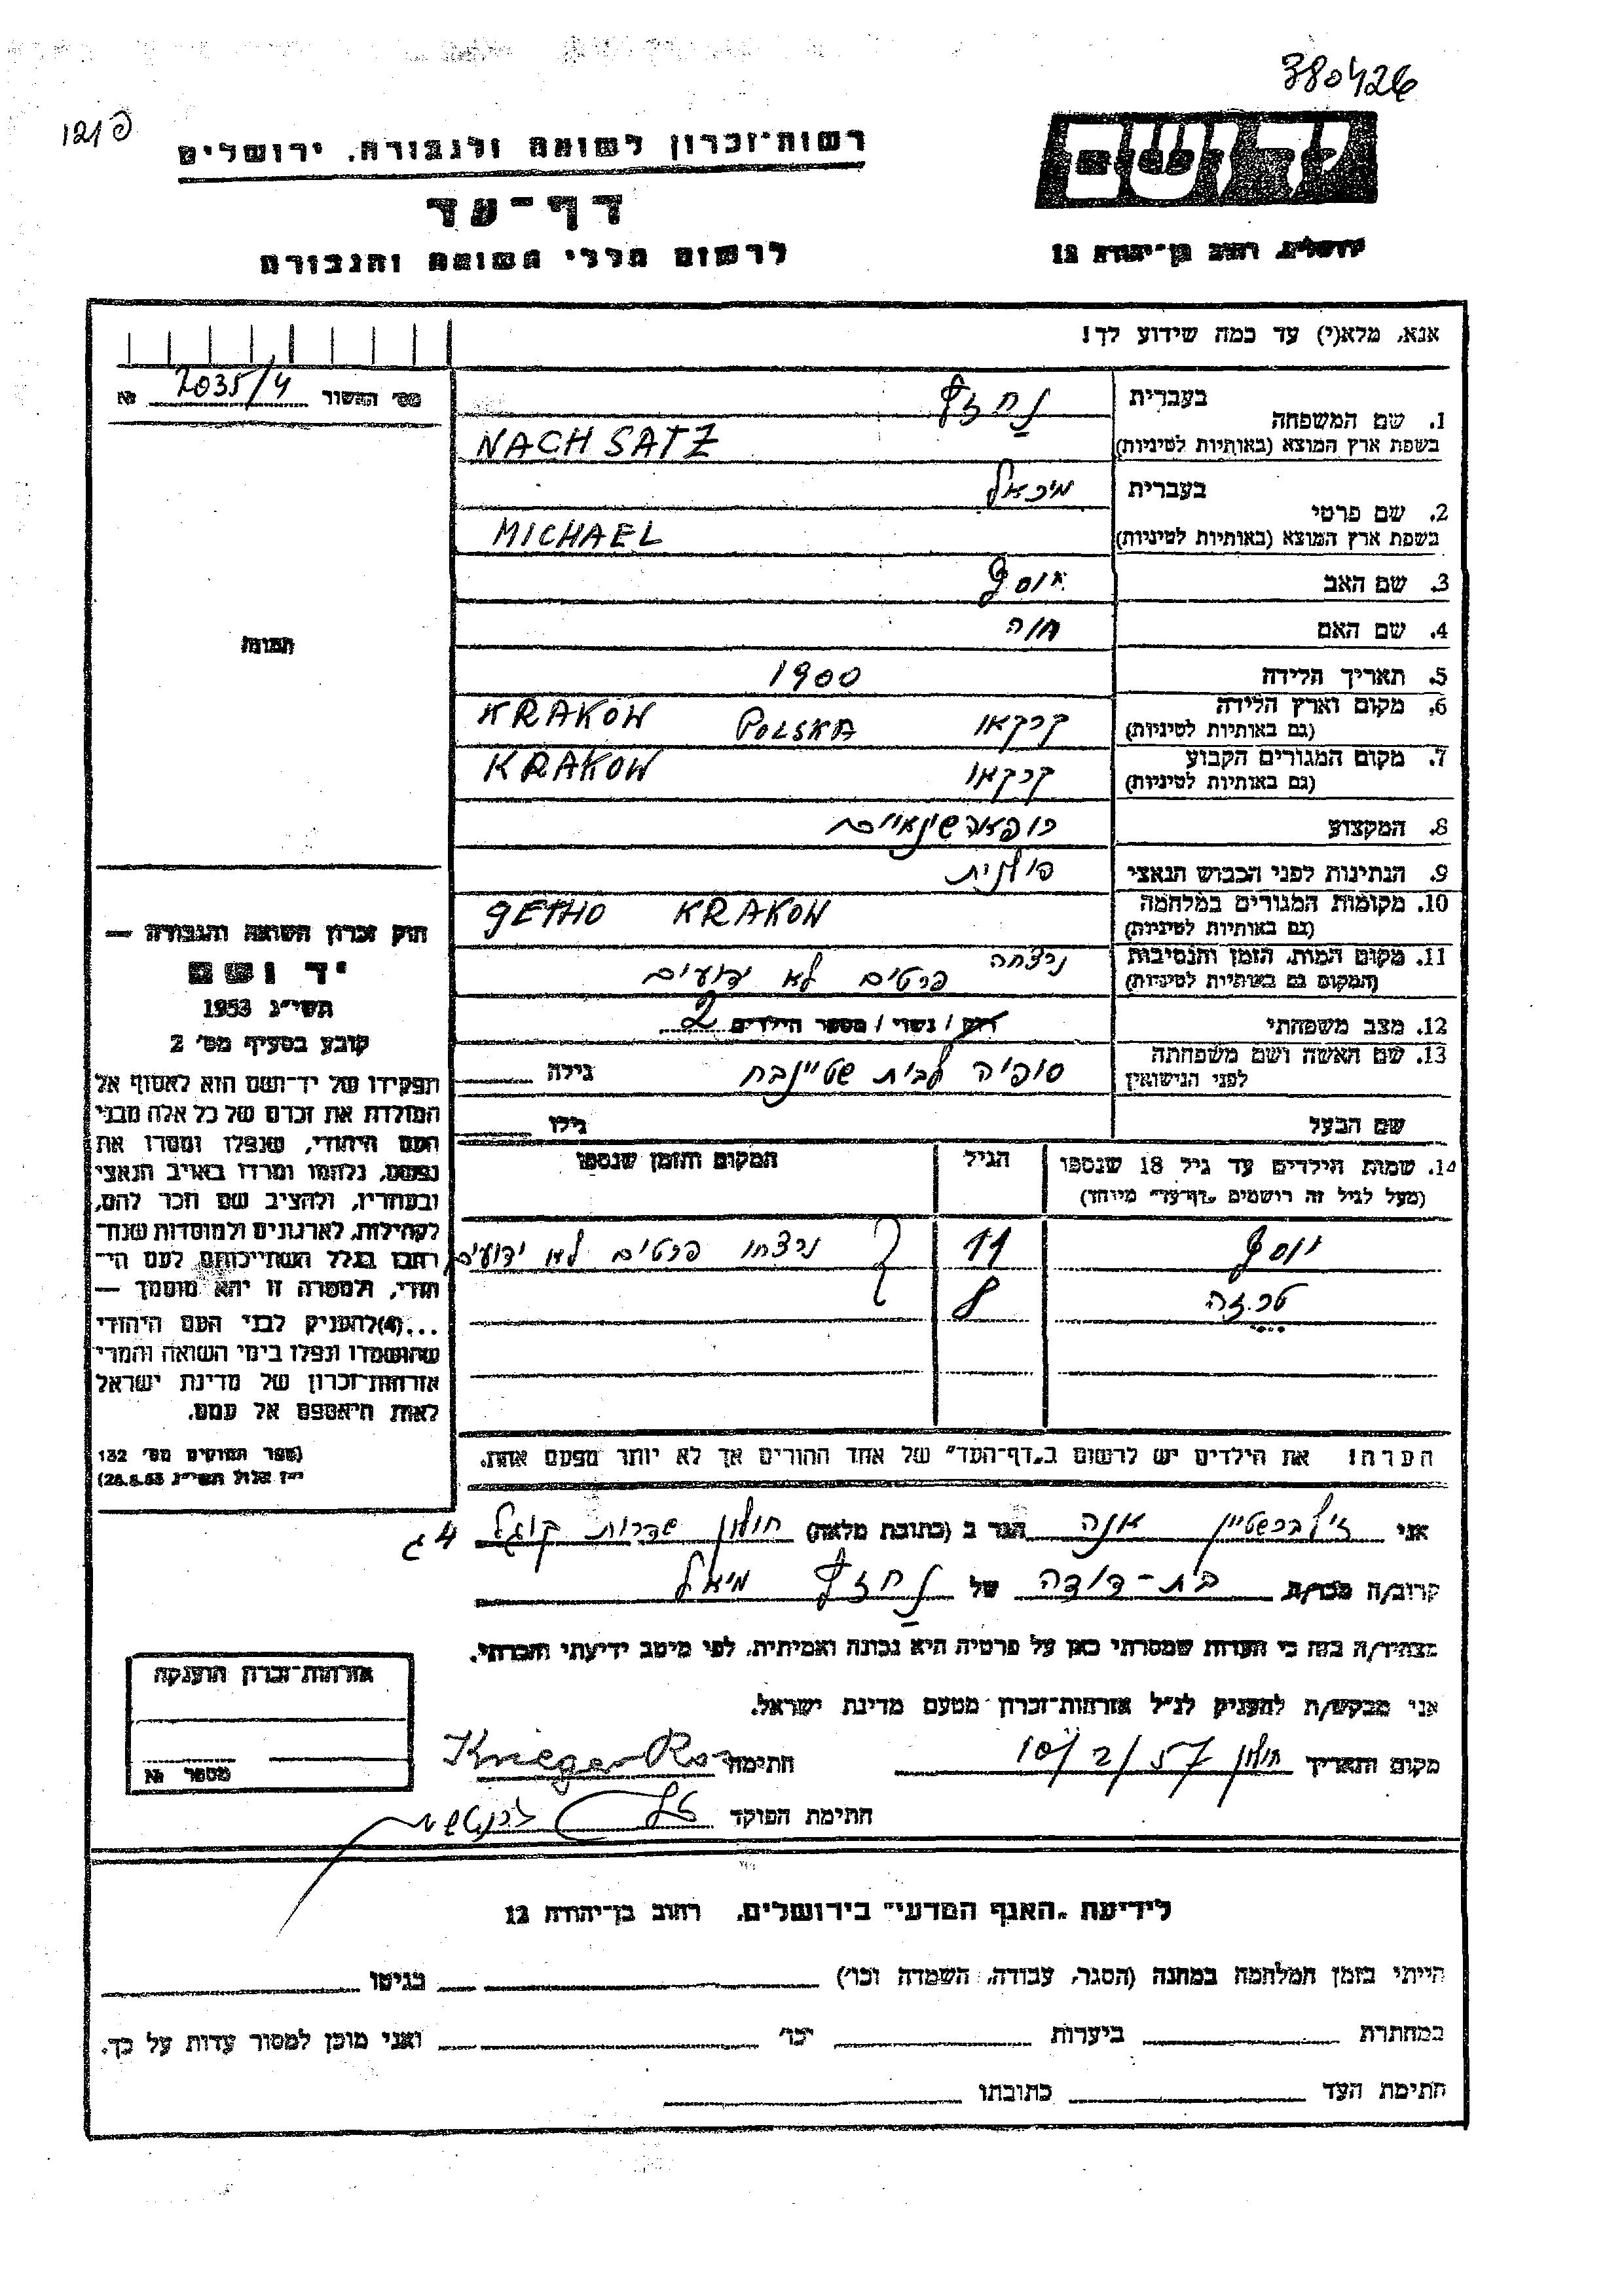 380426
יד ושם
ירושלים, רחוב בן־יהודה 12
רשות־זכרון לשואה ולגבורה, ירושלים
דף־עד
לרשום חללי השואה והגבורה
אנא, מלא(י) עד כמה שידוע לך!
מס' השור 2035/4 №
בעברית נחזץ
1. שם המשפחה
בשפת ארץ המוצא (באותיות לטיניות) NACH SATZ
בעברית מיכאל
2. שם פרטי
בשפת ארץ המוצא (באותיות לטיניות) MICHAEL
3. שם האב יוסף
4. שם האם חוה
תמונה
5. תאריך הלידה 1900
6. מקום וארץ הלידה קרקאו POLSKA KRAKOW
(גם באותיות לטיניות)
7. מקום המגורים הקבוע קרקאו KRAKOW
(גם באותיות לטיניות)
8. המקצוע
9. הנתינות לפני הכבוש הנאצי פולנית
10. מקומות המגורים במלחמה GETHO KRAKOW
(גם באותיות לטיניות)
11. מקום המות, הזמן והנסיבות נרצחה פרטים לא ידועים
(המקום גם באותיות לטיניות)
12. מצב משפחתי רווק / נשוי / מספר הילדים 2
13. שם האשה ושם משפחתה סופיה לבית שטיינבח גילה
לפני הנישואין
שם הבעל גילו
14. שמות הילדים עד גיל 18 שנספו הגיל המקום והזמן שנספו
(מעל לגיל זה רושמים „דף־עד" מיוחד)
יוסף 11 נרצחו פרטים לא ידועים
8
הערה: את הילדים יש לרשום ב„דף־העד" של אחד ההורים אך לא יותר מפעם אחת.
חוק זכרון השואה והגבורה —
יד ושם
תשי"ג 1953
קובע בסעיף מס' 2
תפקידו של יד־ושם הוא לאסוף אל
המולדת את זכרם של כל אלה מבני
העם היהודי, שנפלו ומסרו את
נפשם, נלחמו ומרדו באויב הנאצי
ובעוזריו, ולהציב שם וזכר להם,
לקהילות, לארגונים ולמוסדות שנח־
רבו בגלל השתייכותם לעם הי־
הודי, ולמטרה זו יהא מוסמך —
...(4)להעניק לבני העם היהודי
שהושמדו ונפלו בימי השואה והמרי
אזרחות־זכרון של מדינת ישראל
לאות היאספם אל עמם.
(ספר החוקים מס' 132
י"ז אלול תשי"ג 28.8.53)
אני זילברשטיין אנה הגר ב (כתובת מלאה) חולון שדרות קוגל 4 ג
קרוב/ה מכר/ה בת-דודה של נחזץ מיכאל
מצהיר/ה בזה כי העדות שמסרתי כאן על פרטיה היא נכונה ואמיתית, לפי מיטב ידיעתי והכרתי.
אני מבקש/ת להעניק לנ"ל אזרחות־זכרון מטעם מדינת ישראל.
מקום ותאריך חולון 10/2/57 חתימה Krieger
חתימת הפוקד
אזרחות־זכרון הוענקה
מספר №
לידיעת „האגף המדעי" בירושלים, רחוב בן־יהודה 12
הייתי בזמן המלחמה במחנה (הסגר, עבודה, השמדה וכו') בגיטו
במחתרת ביערות וכו' ואני מוכן למסור עדות על כך.
חתימת העד כתובתו